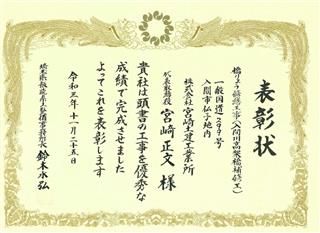 表彰状
橋りょう修繕工事(入間川高架橋補修工)
一般国道299号
入間市仏子地内
株式会社 宮崎土建工業所
代表取締役 宮崎正文 様
貴社は頭書の工事を優秀な
成績で完成させました
よってこれを表彰します
令和三年十一月二十五日
埼玉県飯能県土整備事務所長 鈴木永弘